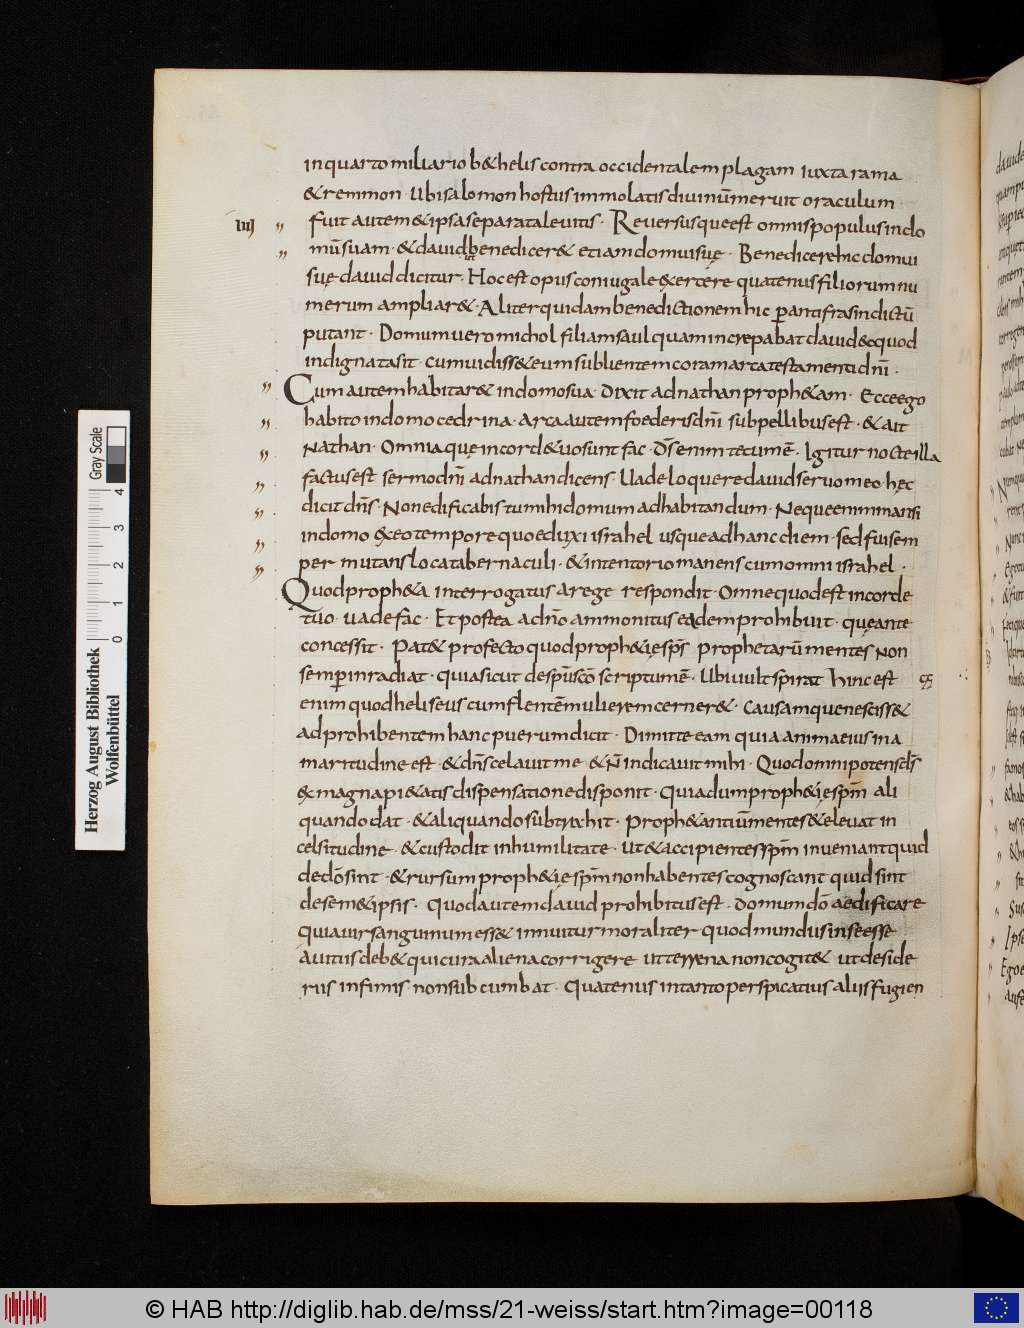 in quarto miliario b&helis contra occidentalem plagam iuxta rama
& remmon Ubi salomon hostiis immolatis divinū meruit oraculum ·
IIIJ fuit autem & ipsa separata levitis · Reversusque est omnis populus in do
mū suam · & david benedicer& etiam domui suę · Benedicere hic domui
suę david dicitur · Hoc est opus coniugale exercere quatenus filiorum nu
merum ampliar& · Aliter quidam benedictionem hic p antifrasin dictū
putant · Domum vero michol filiam saul quam increpabat david eo quod
indignata sit · cum vidiss& eum sublientem coram arca testamenti dn̄i ·
Cum autem habitar& in domo sua · Dixit ad nathan proph&am · Ecce ego
habito in domo cedrina · arca autem foederis dn̄i sub pellibus est · & ait
Nathan · Omnia quę in cord& uo sunt fac · Ds̄ enim tecum ē · Igitur nocte illa
factus est sermo dn̄i ad nathan dicens · Vade loquere david servo meo · hęc
dicit dn̄s · Non edificabis tu mihi domum ad habitandum · Neque enim mansi
in domo ex eo tempore quo eduxi israhel usque ad hanc diem · sed fui sem
per mutans loca tabernaculi · & in tentorio manens cum omni israhel ·
Quod proph&a interrogatus a rege respondit · Omne quod est in corde
tuo · vade fac · Et postea a dn̄o ammonitus eadem prohibuit · quę ante
concessit · Pat& profecto quod proph&ię sp̄s prophetarū mentes non
semp inradiat · quia sicut de spū sc̄o scriptum ē · Ubi vult spirat Hinc est
enim quod heliseus cum flentē mulierem cerner& · causamque nesciss&
ad prohibentem hanc puerum dicit · Dimitte eam quia anima eius in a
maritudine est · & dn̄s celavit me & n̄ indicavit mihi · Quod omnipotens ds̄
ex magna pi&atis dispensatione disponit · Quia dum proph&ię spm̄ ali
quando dat · & aliquando subtrahit · proph&antiū mentes & elevat in
celsitudine · & custodit in humilitate · ut & accipientes spm̄ inveniant quid
de dō sint · & rursum proph&ię spm̄ non habentes cognoscant quid sint
de sem&ipsis · Quod autem david prohibitus est · domum dō aedificare
quia vir sanguinum ess& innuitur moraliter quod mundus in se esse
a vitiis deb& qui cura aliena corrigere ut terrena non cogit& ut deside
riis infimis non subcumbat · Quatenus in tanto perspicatius aliis fugien
Herzog August Bibliothek
Wolfenbüttel
0 1 2 3 4
Gray Scale
© HAB http://diglib.hab.de/mss/21-weiss/start.htm?image=00118